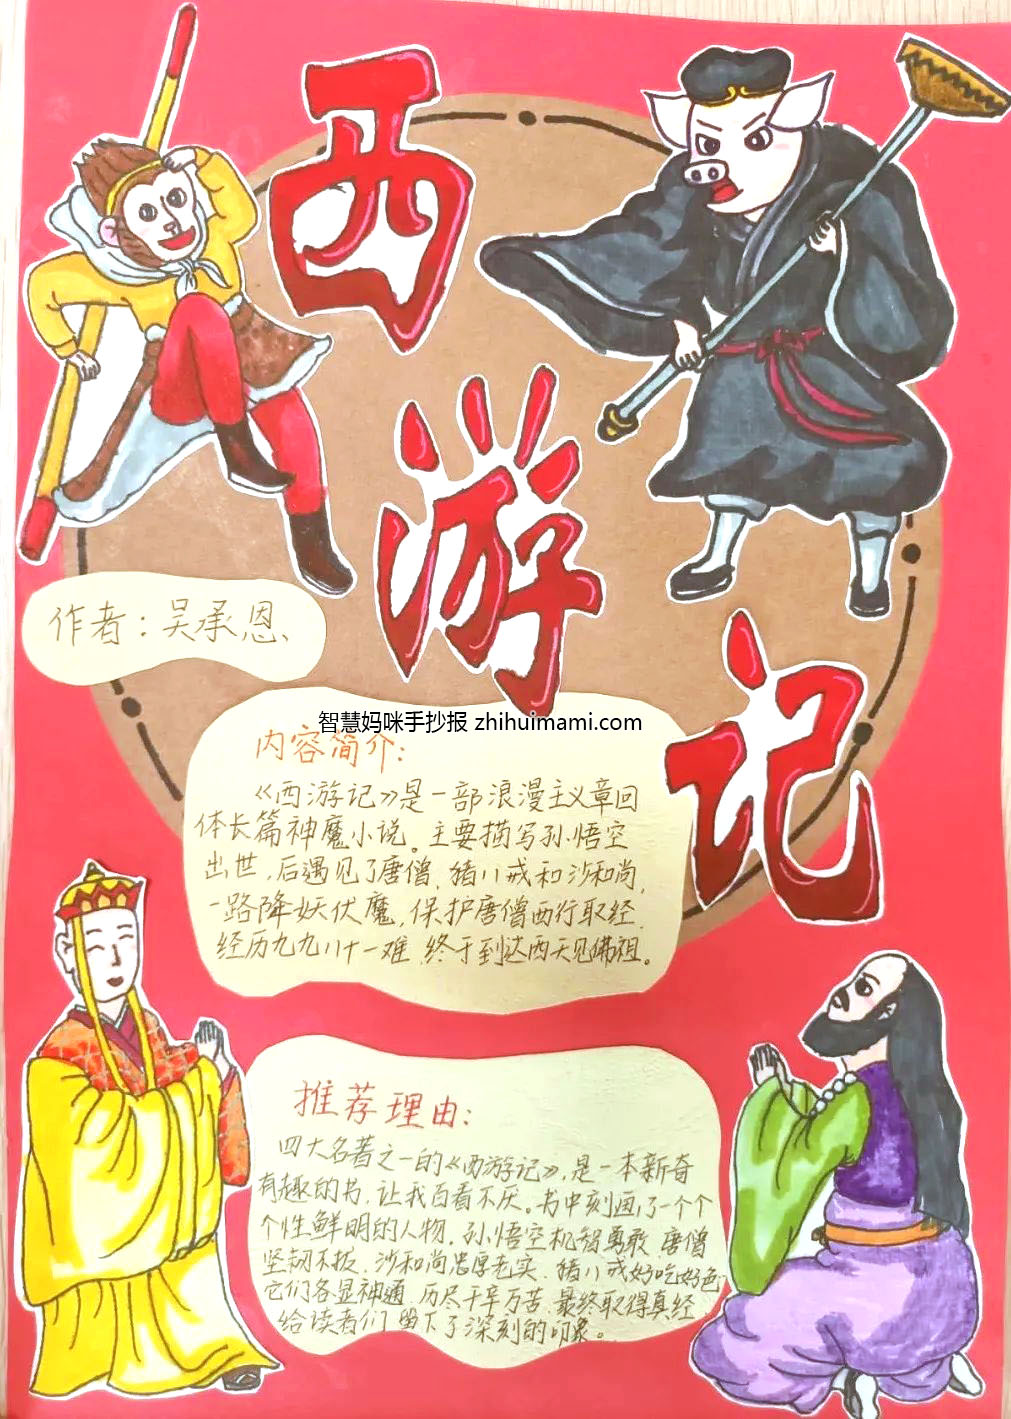 西游记
作者：吴承恩
智慧妈咪手抄报 zhihuimami.com
内容简介：
《西游记》是一部浪漫主义章回
体长篇神魔小说。主要描写孙悟空
出世，后遇见了唐僧，猪八戒和沙和尚，
一路降妖伏魔，保护唐僧西行取经，
经历九九八十一难 终于到达西天见佛祖。
推荐理由：
四大名著之一的《西游记》，是一本新奇
有趣的书，让我百看不厌。书中刻画了一个个
个性鲜明的人物，孙悟空机智勇敢 唐僧
坚韧不拔，沙和尚忠厚老实，猪八戒好吃好色
它们各显神通，历尽千辛万苦，最终取得真经
给读者们留下了深刻的印象。